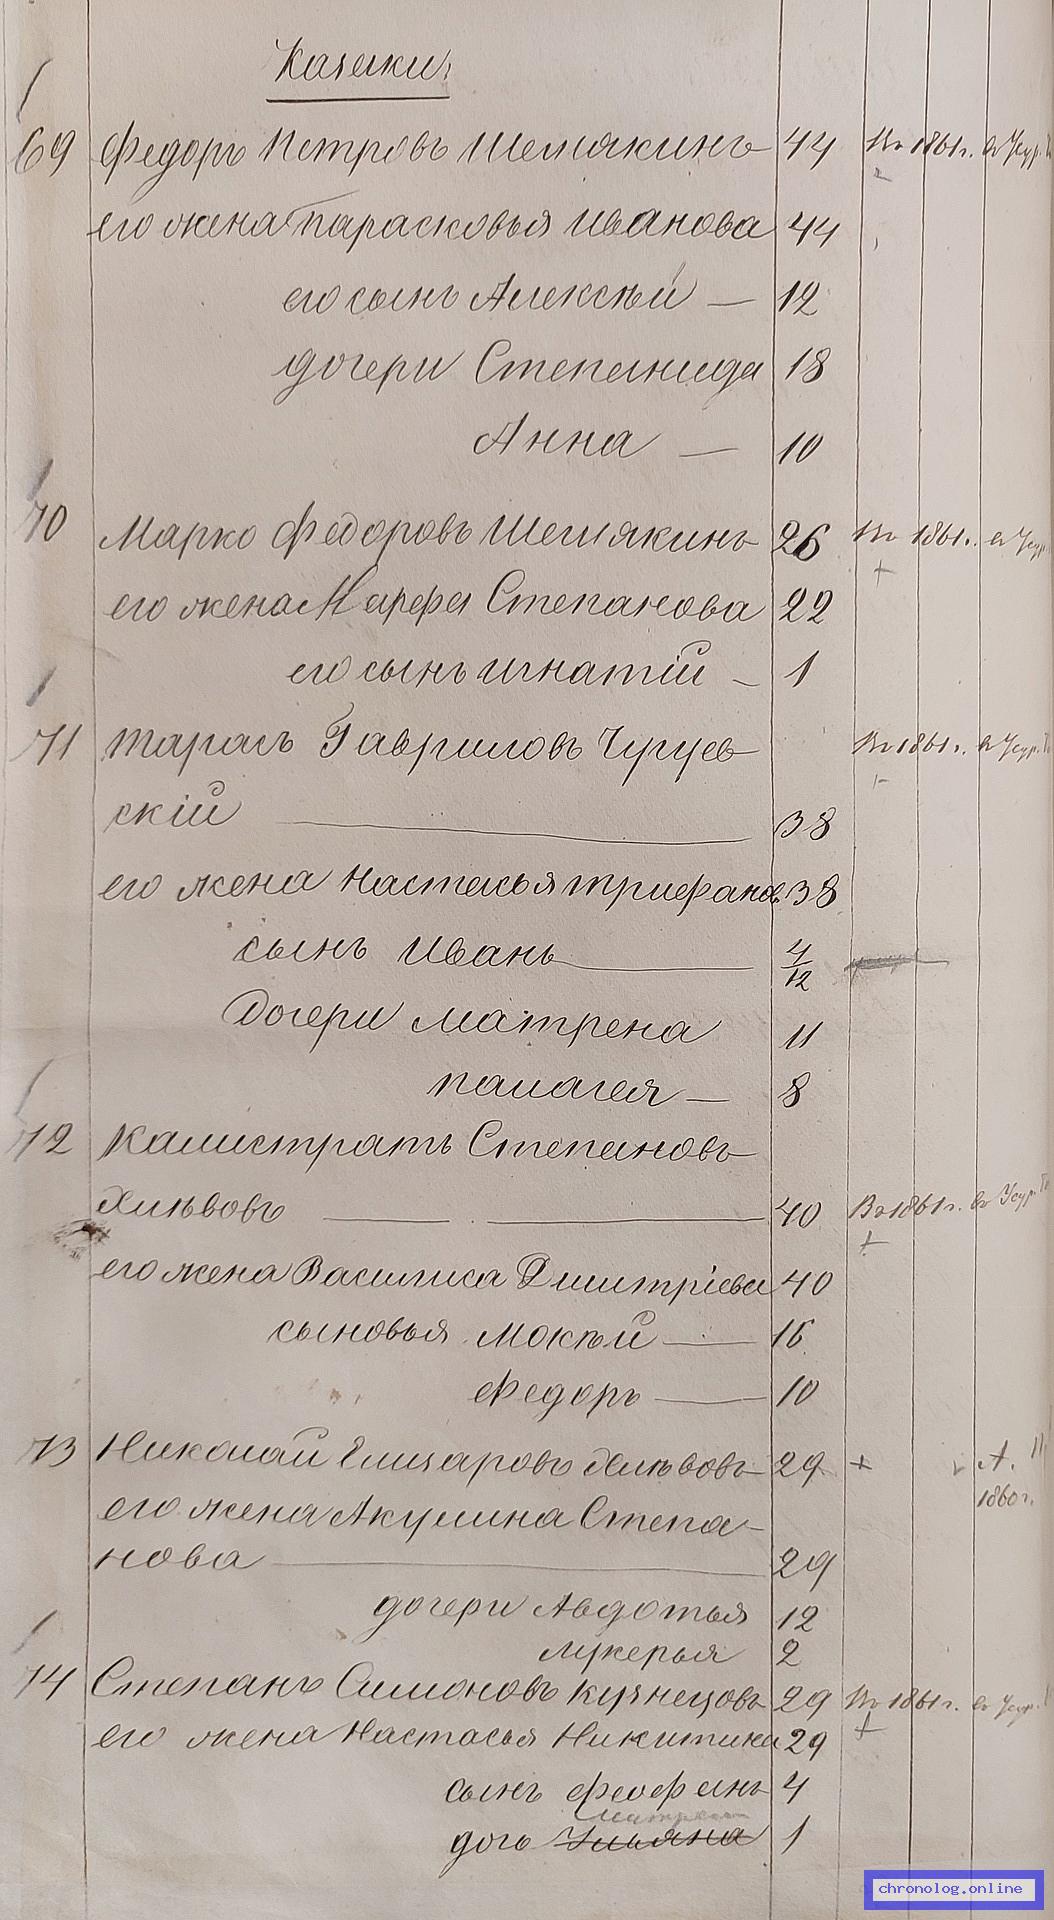 Казаки:
69 Федоръ Петровъ Шемякинъ 44 Въ 1861 г. въ Усур.
его жена Парасковья Иванова 44
его сынъ Алексѣй — 12
дочери Степанида 18
Анна — 10
70 Марко Федоровъ Шемякинъ 26 Въ 1861 г. въ Усур.
его жена Марфа Степанова 22
его сынъ Игнатій — 1
71 Тарасъ Гавриловъ Чугуев- Въ 1861 г. въ Усур.
скій — 38
его жена Настасья Трифанов. 38
сынъ Иванъ — 4/12
дочери Матрена 11
Палагея — 8
72 Калистратъ Степановъ
Хлѣвовъ — 40 Въ 1861 г. въ Усур.
его жена Василиса Дмитріева 40
сыновья Мокѣй — 16
Федоръ — 10
73 Николай Елизаровъ Хлѣвовъ 29 + А.
1860 г.
его жена Акулина Степа-
нова — 29
дочери Авдотья 12
Лукерья 2
74 Степанъ Симоновъ Кузнецовъ 29 Въ 1861 г. въ Усур.
его жена Настасья Никитина 29
сынъ Феофанъ 4
Матрена
дочь Ульяна 1
chronolog.online